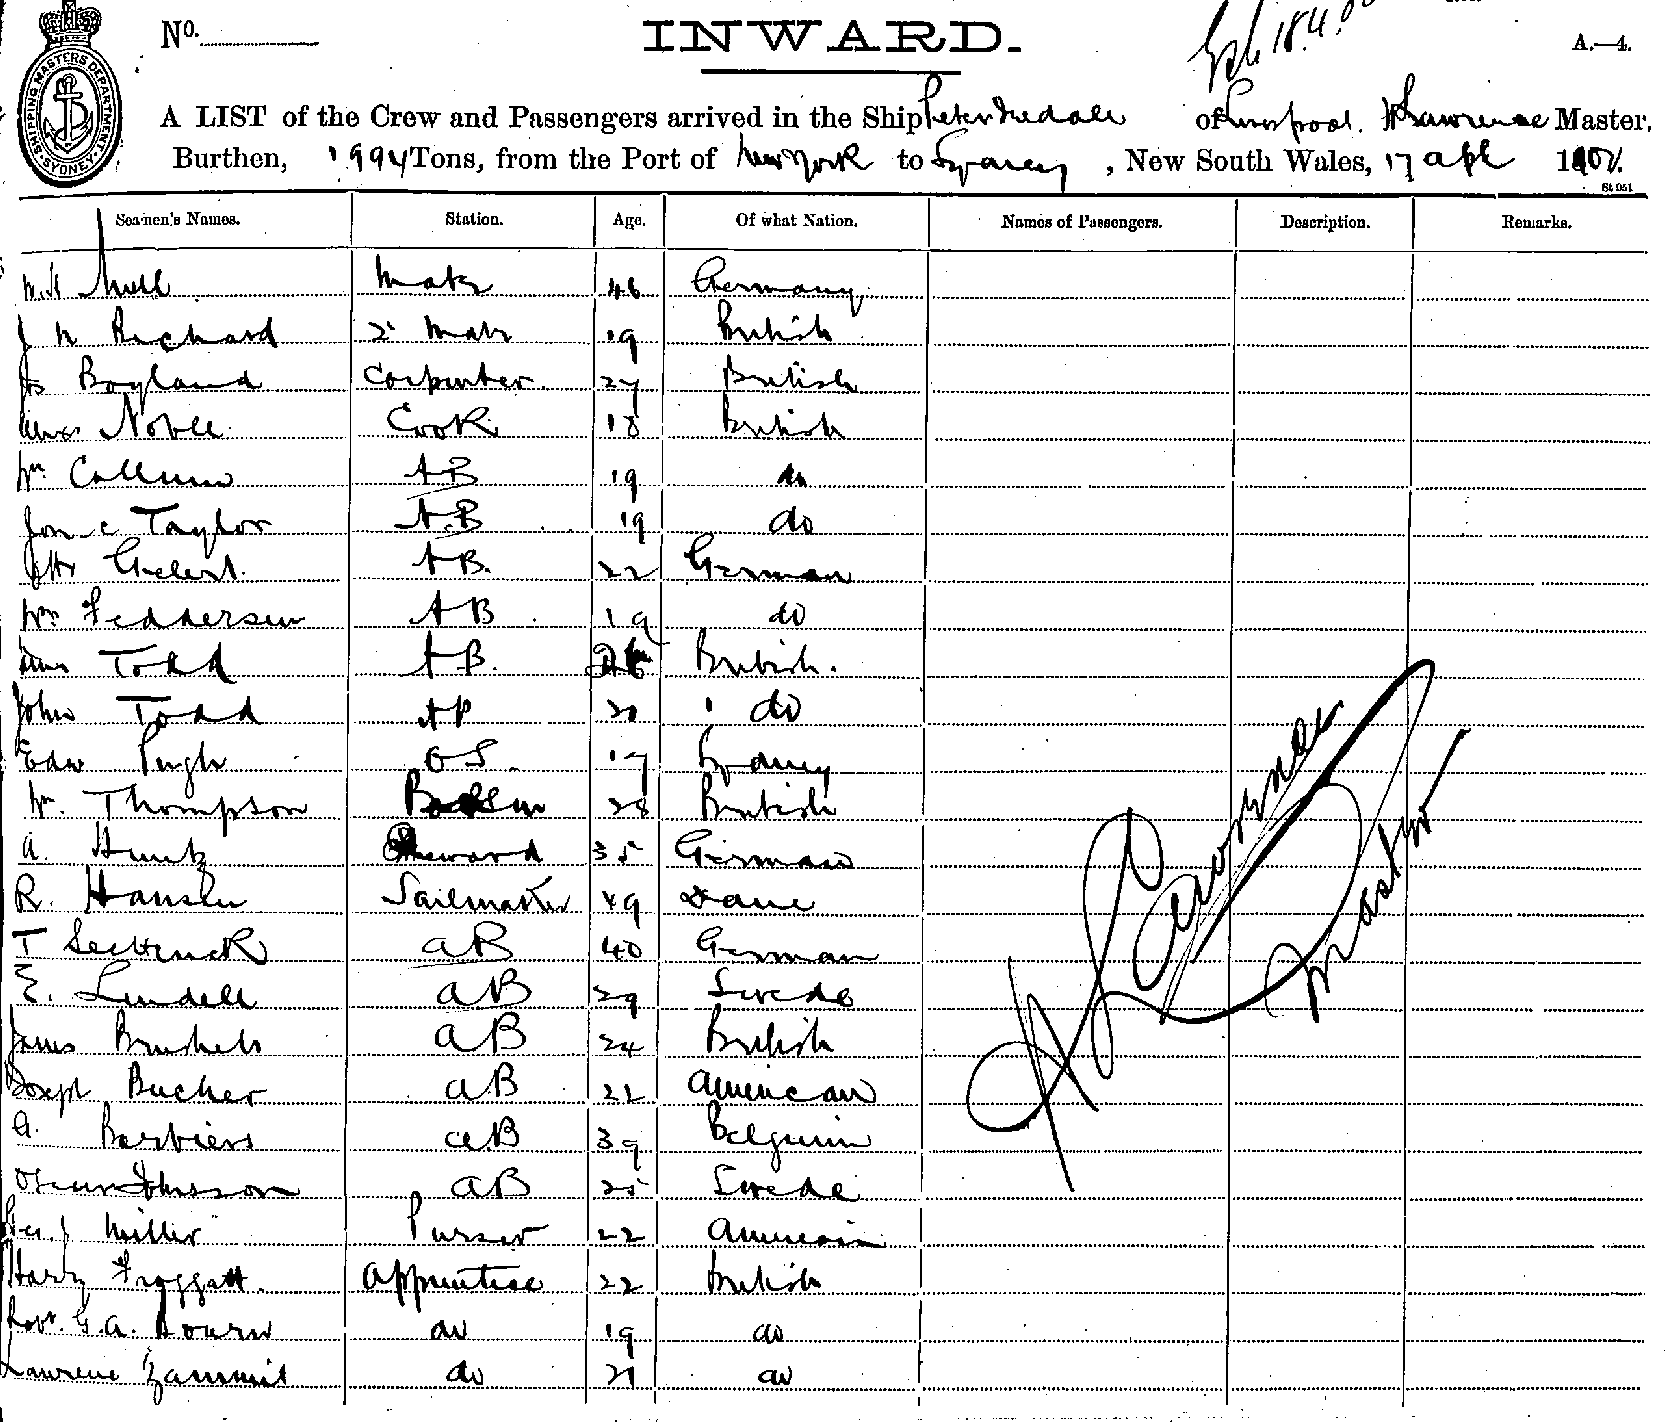 No.
INWARD.
18.4.0
A.—4.
SHIPPING MASTERS DEPARTMENT SYDNEY
A LIST of the Crew and Passengers arrived in the Ship Peter Iredale of Liverpool. H Lawrence Master,
Burthen, 1994 Tons, from the Port of New York to Sydney, New South Wales, 17 Apl 190
St 051
Seamen's Names. Station. Age. Of what Nation. Names of Passengers. Description. Remarks.
Mate 46 Germany
J N Richard 2 Mate 19 British
Js Boyland Carpenter 27 British
Noble Cook 18 British
Wm Callum AB 19 do
Jon C Taylor A.B 19 do
AB. 22 German
Wm Feddersen AB 19 do
Todd AB. British.
John Todd AB 20 do
Edw Pugh OS. 17 Sydney
Wm. Thompson 28 British
A. Steward 35 German
R. Hansen Sailmaker 49 Dane
T AB 40 German
E. Lindell AB 29 Swede
James AB 24 British
Joseph Bucher AB 22 American
A. Barbiers AB 39 Belguim
Oscar Johnsson AB 25 Swede
Geo. J Miller Purser 22 American
Harry Froggatt. Apprentice 22 British
Robt. G.A. Bourn do 19 do
Lawrence Zammit do 21 do
H Lawrence
Master